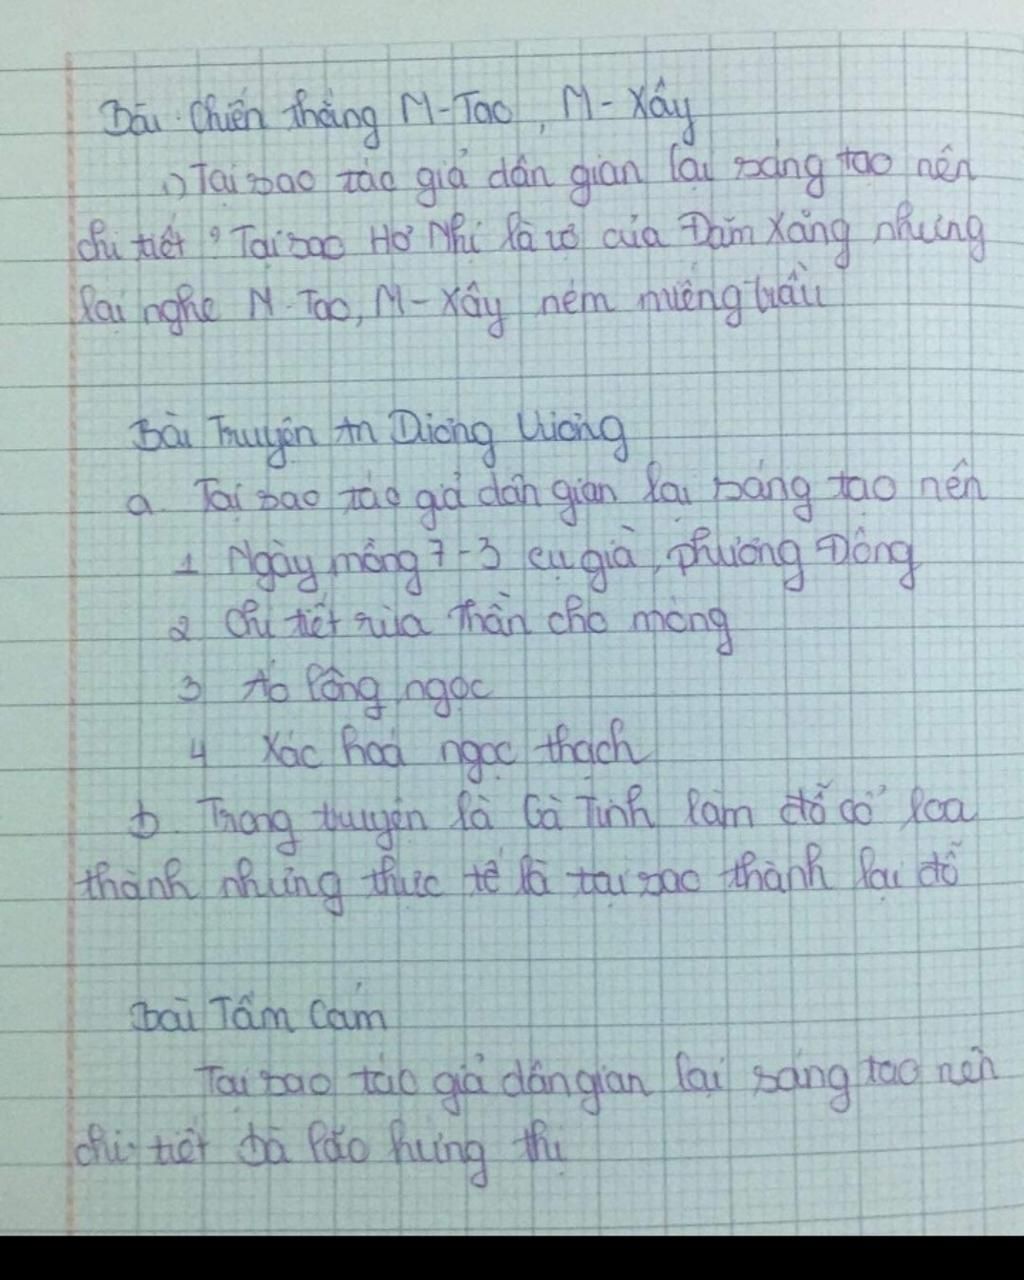 Bài: Chiến thắng M-Tao, M-Xây
1) Tại sao tác giả dân gian lại sáng tạo nên
chi tiết: Tại sao Hơ Nhị là vợ của Đăm Xăng nhưng
lại nghe M-Tao, M-Xây ném miếng trầu
Bài Truyện An Dương Vương
a. Tại sao tác giả dân gian lại sáng tạo nên
1 Ngày mồng 7-3 cụ già, phương Đông
2 Chi tiết rùa thần cho móng
3 Áo lông ngọc
4 Xác hoá ngọc thạch
b. Trong truyện là Gà Tinh làm đổ cổ loa
thành nhưng thực tế là tại sao thành lại đổ
Bài Tấm Cám
Tại sao tác giả dân gian lại sáng tạo nên
chi tiết bà lão hưng thị